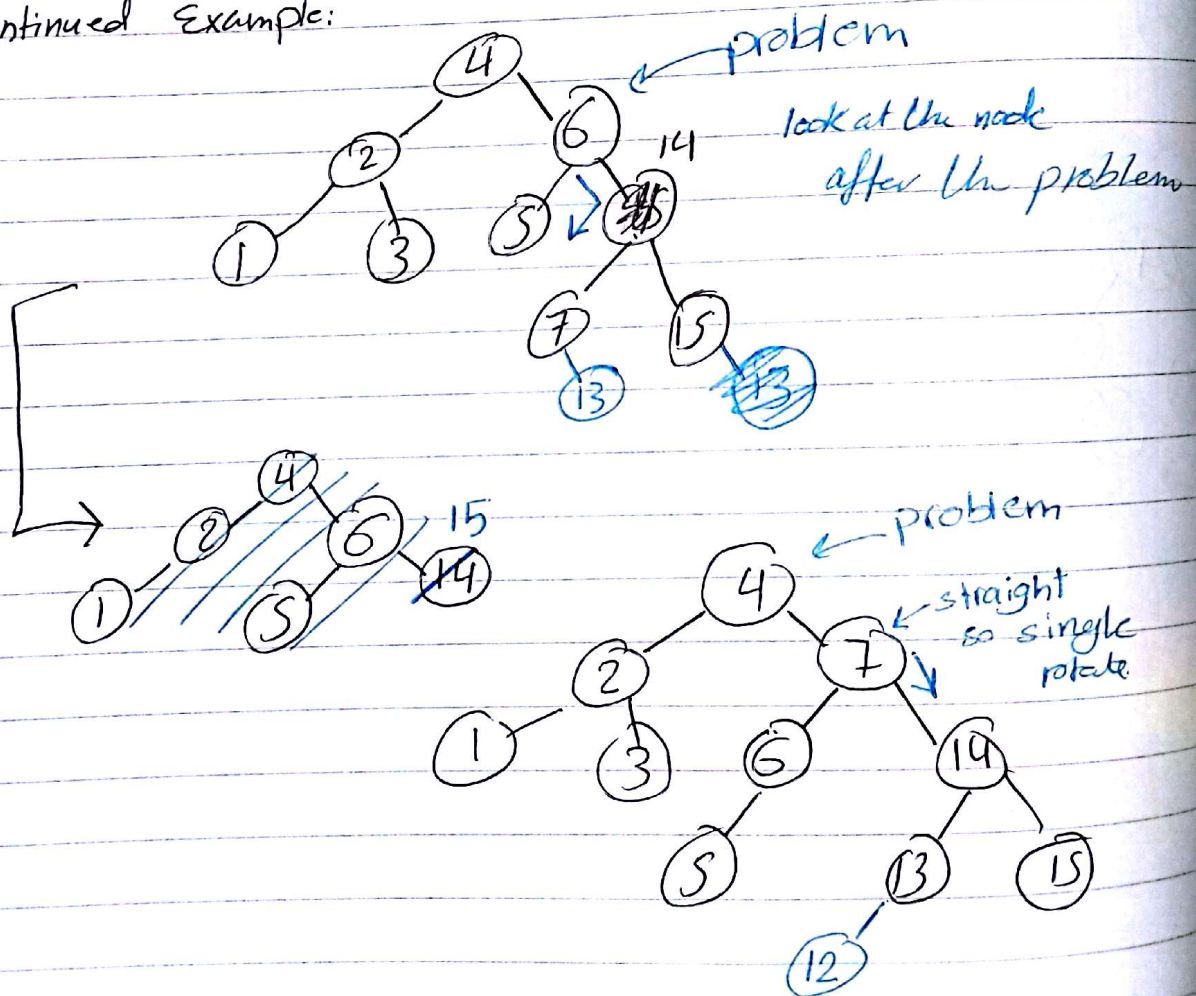 ntinued Example:
problem
4
look at the node
after the problem
6
14
2
5
1
3
7
15
13
13
4
2
6
15
14
1
5
problem
4
straight
so single
rotate.
7
2
1
3
6
14
5
13
15
12